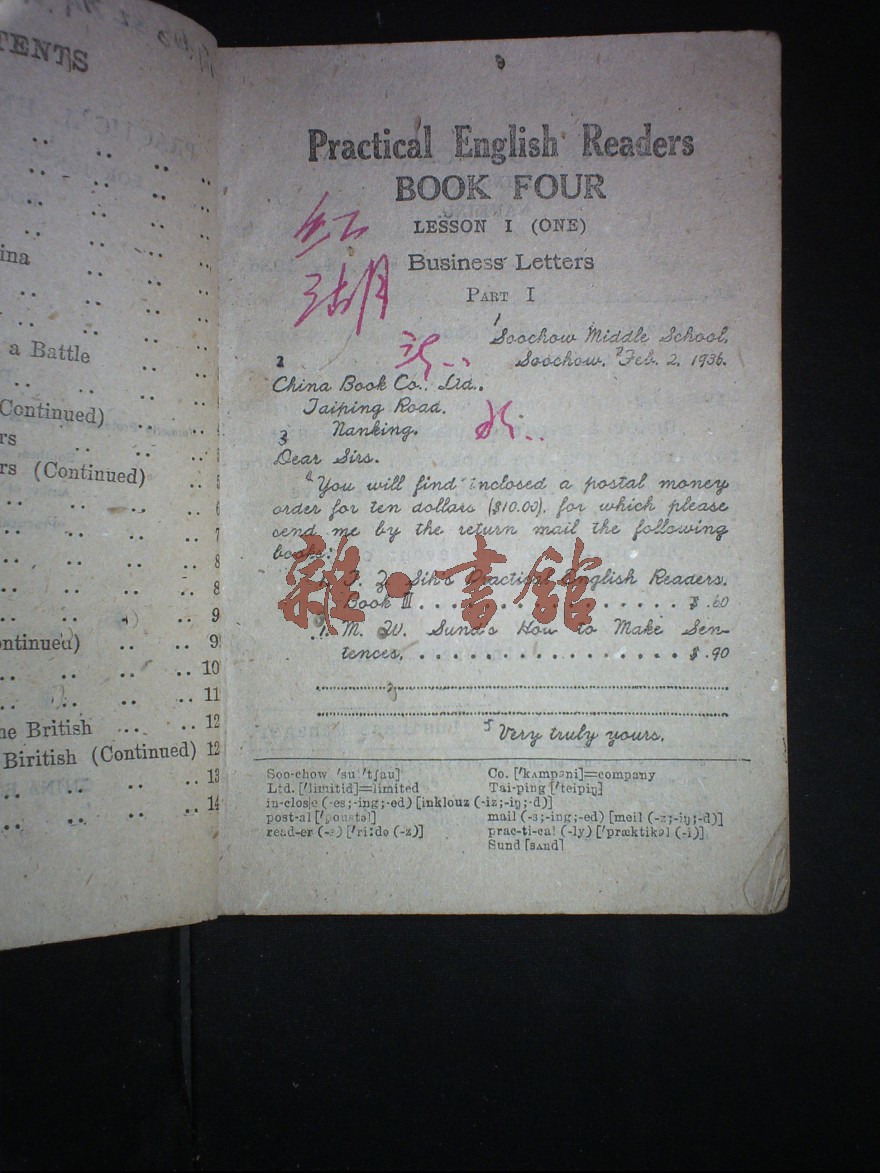 TENTS
ina
a Battle
(Continued)
rs
rs (Continued)
5
6
7
8
8
9
ontinued) 9
10
11
he British 12
Biritish (Continued) 12
13
14
Practical English Readers
BOOK FOUR
LESSON I (ONE)
Business Letters
PART I
红
湖
1
Soochow Middle School,
Soochow, Feb. 2, 1936.
2
China Book Co., Ltd.,
Taiping Road,
Nanking.
3
Dear Sirs.
4 You will find inclosed a postal money
order for ten dollars ($10.00), for which please
send me by the return mail the following
books:
1. F. Z. Sih's Practical English Readers,
Book III. . . . . . . . . . . . . . . . . $ .60
1. M. W. Sund's How to Make Sen-
tences. . . . . . . . . . . . . . . . . . $ .90
5 Very truly yours,
雜·書館
Soo-chow ['su:'tʃau] Co. ['kʌmpəni]=company
Ltd. ['limitid]=limited Tai-ping ['teipiŋ]
in-close (-es;-ing;-ed) [inklouz (-iz;-iŋ;-d)]
post-al ['poustəl] mail (-s;-ing;-ed) [meil (-z;-iŋ;-d)]
read-er (-s) ['ri:də (-z)] prac-ti-cal (-ly) ['præktikəl (-i)]
Sund [sʌnd]